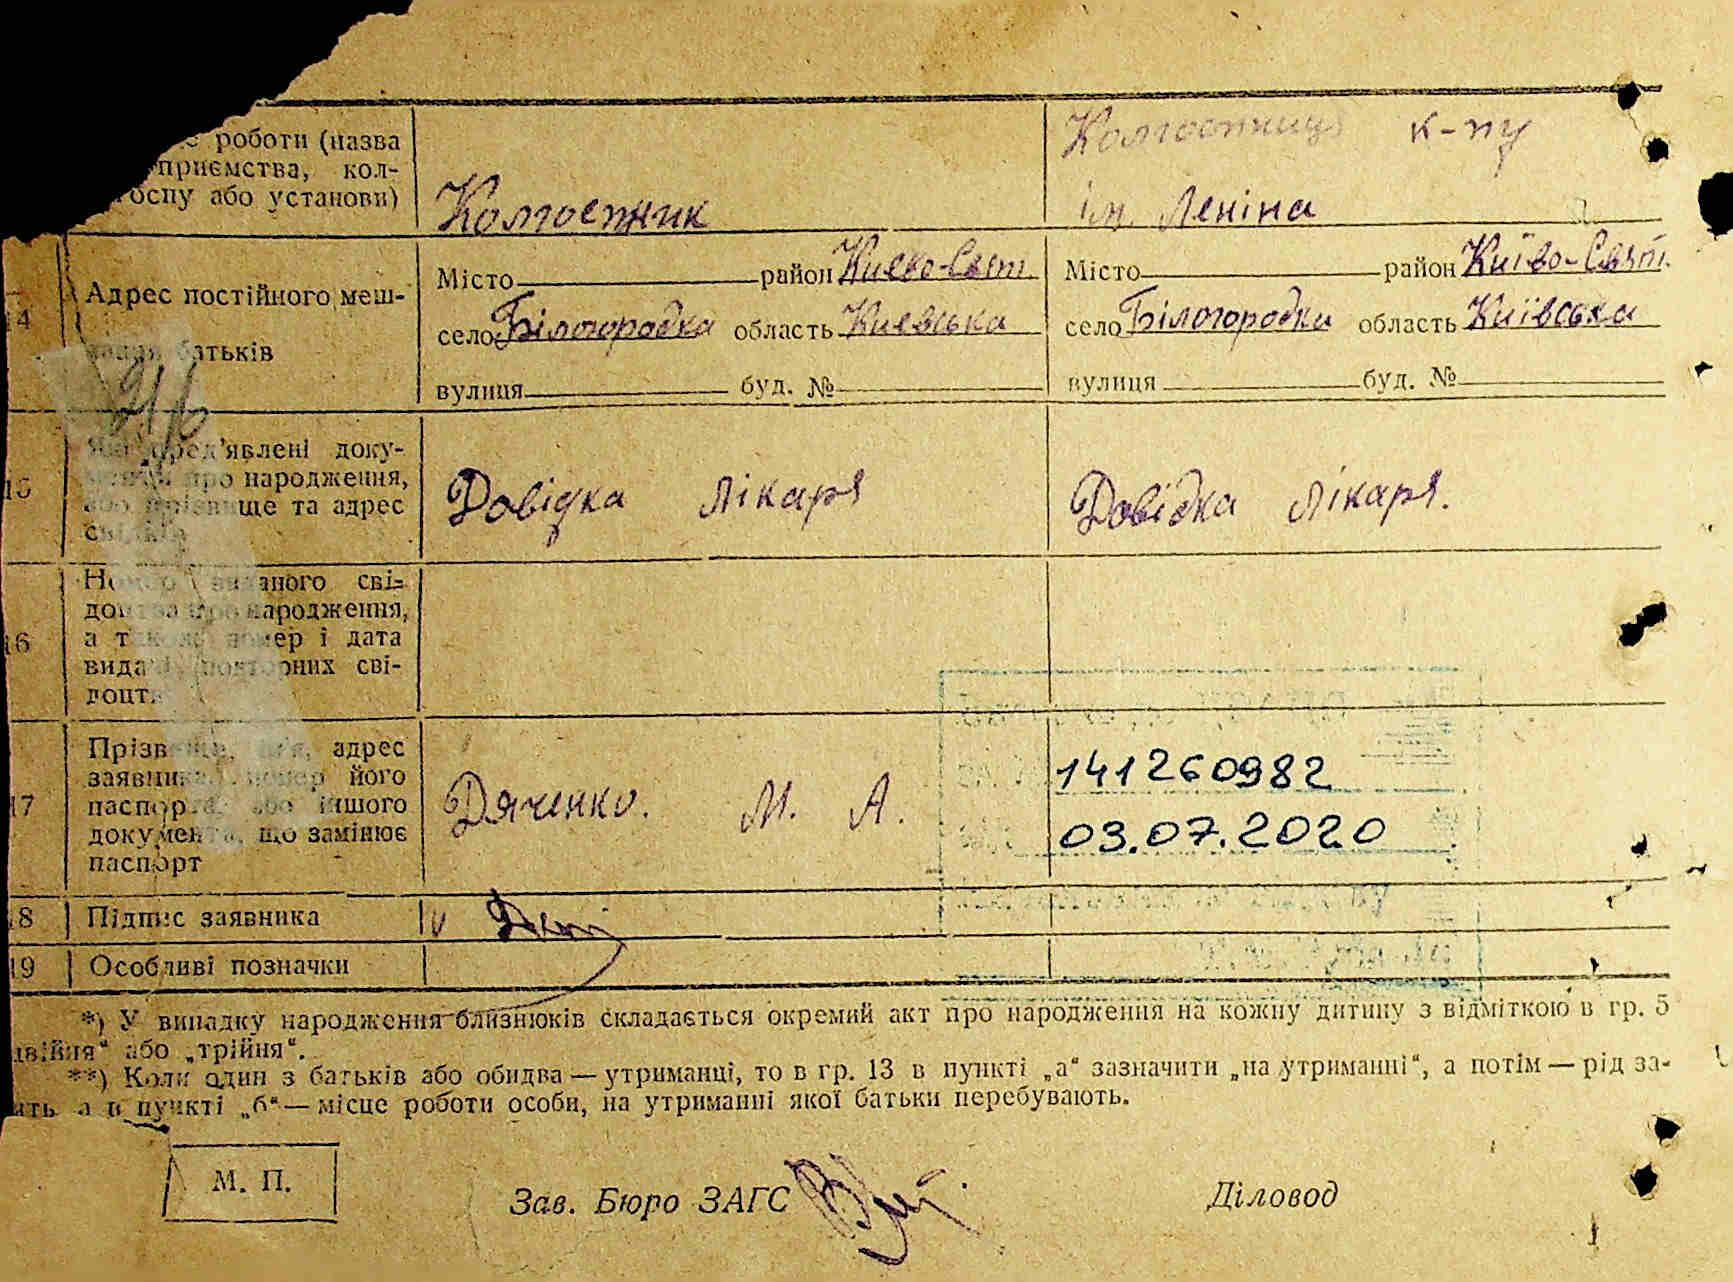 роботи (назва
приємства, кол-
госпу або установи)
Колгоспник
Колгоспниця к-пу
ім. Леніна
14
Адрес постійного меш-
кання батьків
Місто район Києво-Свят.
село Білогородка область Киевська
вулиця буд. №
Місто район Київо-Свят.
село Білогородки область Київська
вулиця буд. №
15
Які пред'явлені доку-
менти про народження,
або прізвище та адрес
свідків
Довідка лікаря
Довідка лікаря.
16
Номер виданого сві-
доцтва про народження,
а також номер і дата
видачі повторних сві-
доцтв
17
Прізвище, ім'я, адрес
заявника, номер його
паспорта або іншого
документа, що замінює
паспорт
Дяченко. М. А.
141260982
03.07.2020
18
Підпис заявника
19
Особливі позначки
*) У випадку народження близнюків складається окремий акт про народження на кожну дитину з відміткою в гр. 5
двійня" або „трійня".
**) Коли один з батьків або обидва — утриманці, то в гр. 13 в пункті „а" зазначити „на утриманні", а потім — рід за-
нять а в пункті „б" — місце роботи особи, на утриманні якої батьки перебувають.
М. П.
Зав. Бюро ЗАГС
Діловод